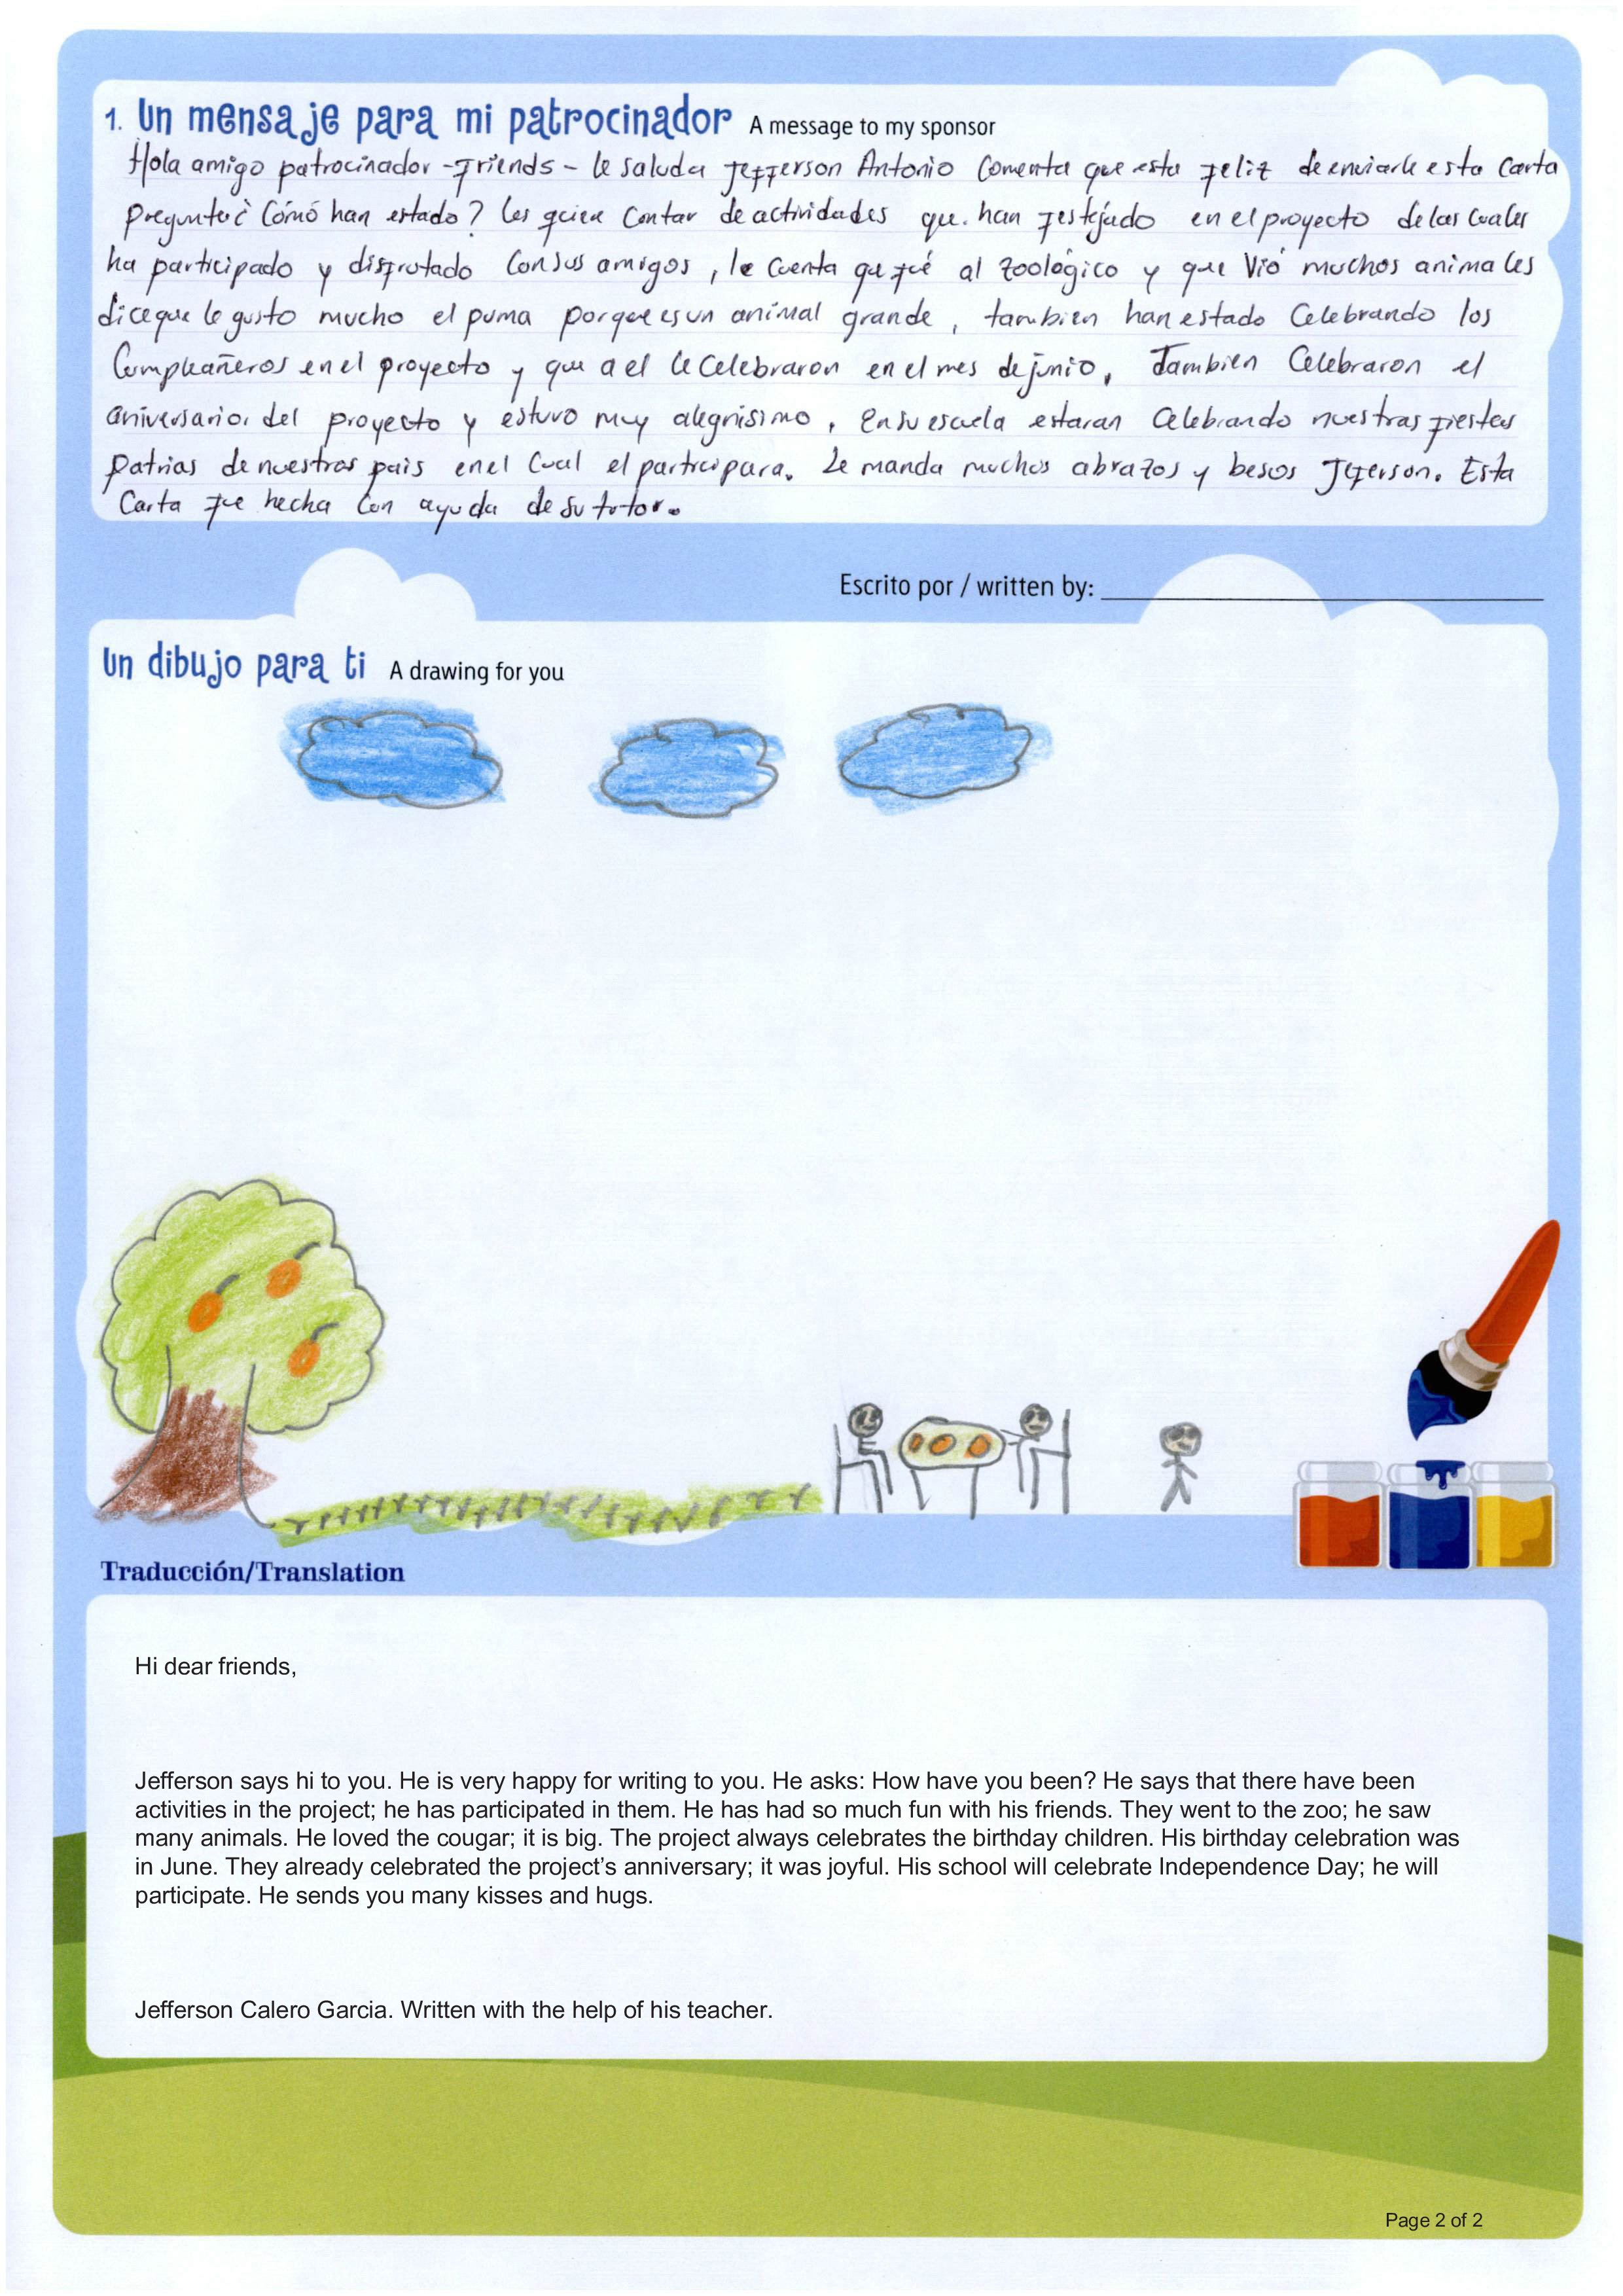 1. Un mensaje para mi patrocinador A message to my sponsor
Hola amigo patrocinador - Friends - le saluda Jefferson Antonio Comenta que esta feliz de enviarle esta Carta
pregunta ¿Cómó han estado? les quiere Contar de actividades que. han festejado en el proyecto de las Cuales
ha participado y disfrutado Con sus amigos, le Cuenta que fué al zoológico y que Vió muchos animales
dice que le gusto mucho el puma porque es un animal grande, tambien han estado Celebrando los
Cumpleañeros en el proyecto y que a el le Celebraron en el mes de junio, Tambien Celebraron el
aniversario. del proyecto y estuvo muy alegrisimo, En su escuela estaran Celebrando nuestras fiestas
patrias de nuestros pais en el Cual el participara. Le manda muchos abrazos y besos Jeferson. Esta
Carta fue hecha Con ayuda de su tutor.
Escrito por / written by:
Un dibujo para ti A drawing for you
Traducción/Translation
Hi dear friends,
Jefferson says hi to you. He is very happy for writing to you. He asks: How have you been? He says that there have been
activities in the project; he has participated in them. He has had so much fun with his friends. They went to the zoo; he saw
many animals. He loved the cougar; it is big. The project always celebrates the birthday children. His birthday celebration was
in June. They already celebrated the project’s anniversary; it was joyful. His school will celebrate Independence Day; he will
participate. He sends you many kisses and hugs.
Jefferson Calero Garcia. Written with the help of his teacher.
Page 2 of 2